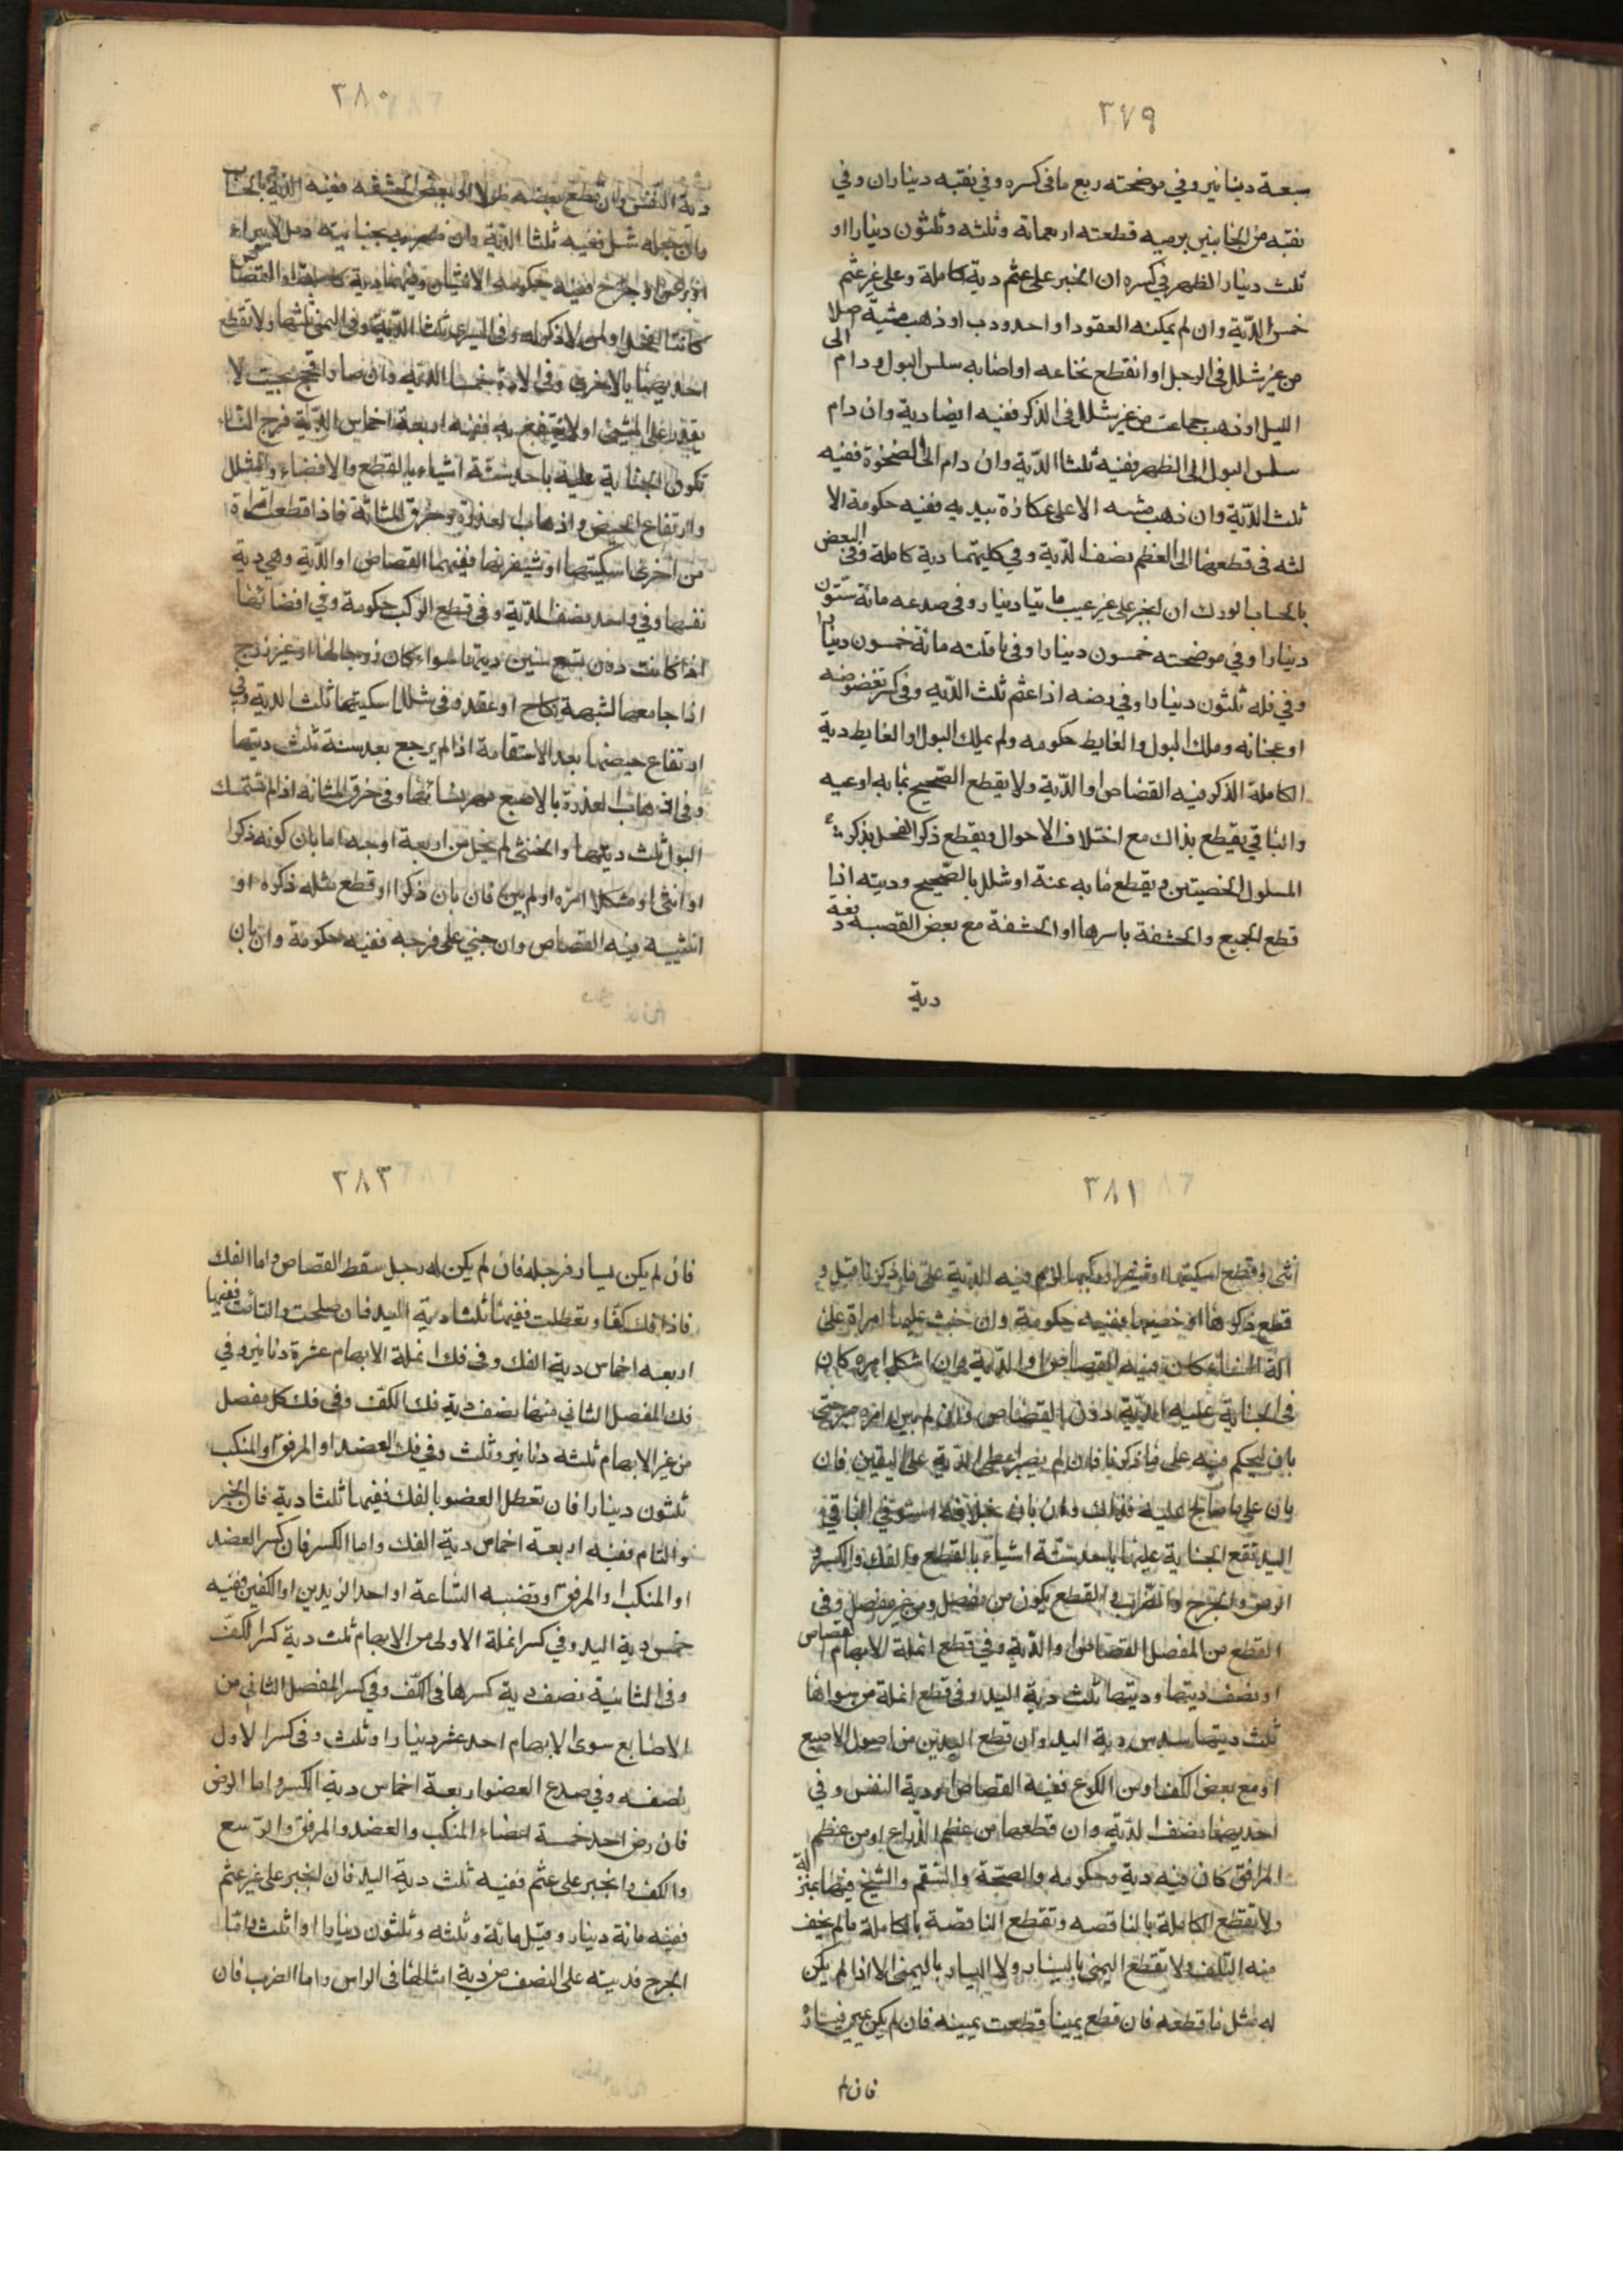 ٣٧٩
سبعة دينا نير وفي موضحته ربع ما في كسره وفي نقبه ديناران وفي
نقبه من الجانبين برميه قطعته اربعمائة وثلثه وثلثون دينارا او
ثلث دينار الظهر في كسره ان انجبر على عثم دية كاملة وعلى غير عثم
خمس الدّية وان لم يمكنه العقود او احدودب او ذهب مشيّه اصلا
من غير شلل في الرجل او انقطع نخاعه او اصابه سلس البول ودام الى
الليل او ذهب جماعت من غير شلل في الذكر ففيه ايضا دية وان دام
سلس البول الى الظهر ففيه ثلثا الدّية وان دام الى الضخوة ففيه
ثلث الدّية وان ذهب مشيه الا على عكازة بيديه ففيه حكومة الا
لثه في قطعها الى العظم نصف الدّية وفي كليتهما دية كاملة وفي البعض
بالحساب الورك ان انجبر على غير عيب ما يتا دينار وفي صدعه مائة ستون
دينارا وفي موضحته خمسون دينارا وفي ناقلته مائة خمسون دينارا
وفي فكه ثلثون دينارا وفي رضه اذا عثم ثلث الدّيه وفي كسر نغضوضه
او عجانه وملك البول والغايط حكومه ولم يملك البول والغايط دية
الكاملة الذكر فيه القصاص او الدّية ولا يقطع الصّحيح بما به او عيه
والباقي يقطع بذاك مع اختلاف الاحوال ويقطع ذكر الفحل بذكر
المسلول الخصيتين ويقطع ما به عنة او شلل بالصّحيح وديته اذا
قطع الجميع والحشفة باسرها او الحشفة مع بعض القصبه
دية
٣٨٠
دية النفس وان قطع بعضه طولا الى بعض الحشفه ففيه الدّية بالحساب
وان جعله شل ففيه ثلثا الدّية وان ظهر به بجنايته
او جرح ففيه حكومه الانثيان وفيهما دية كاملة او القصاص
كانتا لفحل او لمن لا ذكر له وفي اليسرى ثلثا الدّية وفي اليمنى ثلثها ولا تقطع
احديهما بالاخرى وفي الادرة خمسا الدّية وان صار افحج بحيث لا
يقدر على المشي او لا ينتفع به ففيه اربعة اخماس الدّية فرج النسا
تكون الجناية عليه باحد ستّة اشياء بالقطع والافضاء والشلل
وارتفاع الحيض واذهاب العذرة وخرق المثانة فاذا قطعت امراة
من اخرى اسكيتها او شفريها ففيهما القصاص او الدّية وهي دية
نفسها وفي واحد نصف الدّية وفي قطع الركب حكومة وفي افضائها
اذا كانت دون تسع سنين ديتها سواء كان زوجا لها او غير زوج
اذا جامعها لشبهة نكاح او عقد وفي شلل اسكيتها ثلثا الدية وفي
ارتفاع حيضها بعد الاستقامة اذا لم يرجع بعد سنة ثلث ديتها
وفي اذهاب العذرة بالاصبع مهر نسائها وفي خرق المثانه اذا لم تتمسك
البول ثلث ديتها والخنثى لم يخل من اربعة اوجه اما بان كونه ذكرا
او انثى او مشكلا امره او لم يبن فان بان ذكرا وقطع مثله ذكره او
انثييه فيه القصاص وان جني على فرجه ففيه حكومة وان بان
٣٨١
انثى وقطع اسكيتها او شفرا ركبها لزم فيه الدّية على ما ذكرنا قبل و
قطع ذكرها او خصيها ففيه حكومة وان جنت عليها امراة على
الة النساء كان فيه القصاص او الدّية وان اشكل امره كان
في الجناية عليه الدّية دون القصاص وان لم يبن امره صبر حتى
بان ليحكم فيه على ما ذكرنا فان لم يصبر اعطى الدّية على اليقين فان
بان على ما صالح عليه فذاك وان بان خلافه استوفي الباقي
اليد تقع الجناية عليها باحد ستّة اشياء بالقطع والفك والكسر و
الرض والجرح والضّرب والقطع يكون من مفصل ومن غير مفصل وفي
القطع من المفصل القصاص او الدّية وفي قطع انملة الابهام القصاص
او نصف ديتها وديتها ثلث دية اليد وفي قطع انملة من سواها
ثلث ديتها سدس دية اليد وان قطع اليدين من اصول الاصبع
او مع بعض الكف او من الكوع ففيه القصاص او دية النفس وفي
احديهما نصف الدّية وان قطعها من عظم الذّراع او من عظم
المرافق كان فيه دية وحكومه والصحّة والسّقم والشيخ فيها بمنزلة
ولا يقطع الكاملة بالناقصه وتقطع الناقصة بالكاملة ما لم يخف
منه التّلف ولا تقطع اليمنى باليسار ولا اليسار باليمنى الا اذا لم يكن
له مثل ما قطعه فان قطع يمينا قطعت يمينه فان لم يكن يمين فيساره
فان لم
٣٨٢
فان لم يكن يسار فرجله فان لم يكن له رجل سقط القصاص واما الفك
فاذا فك كفّا وتعطلت ففيها ثلثا دية اليد فان صلحت والتأمت ففيها
اربعه اخماس دية الفك وفي فك انملة الابهام عشرة دنانير وفي
فك المفصل الثاني منها نصف دية فك الكفّ وفي فك كل مفصل
من غير الابهام ثلثه دنانير وثلث وفي فك العضد او المرفق او المنكب
ثلثون دينارا فان تعطل العضو بالفك ففيها ثلثا دية فان انجبر
والتام ففيه اربعة اخماس دية الفك واما الكسر فان كسر العضد
او المنكب او المرفق او قصبه السّاعة او احد الزيدين او الكفين ففيه
خمس دية اليد وفي كسر انملة الاولى من الابهام ثلث دية كسر الكفّ
وفي الثانية نصف دية كسرها في الكّف وفي كسر المفصل الثاني من
الاصابع سوى الابهام احد عشر دينارا وثلث وفي كسر الاول
نصفه وفي صدع العضو اربعة اخماس دية الكسر واما الرض
فان رض احد خمسة اعضاء المنكب والعضد والمرفق والرّسع
والكف وانجبر على عثم ففيه ثلث دية اليد فان انجبر على غير عثم
ففيه مائة دينار وقيل مائة وثلثه وثلثون دينارا او ثلث وامّا
الجرح فديته على النصف من دية امثالها في الراس واما الضرب فان